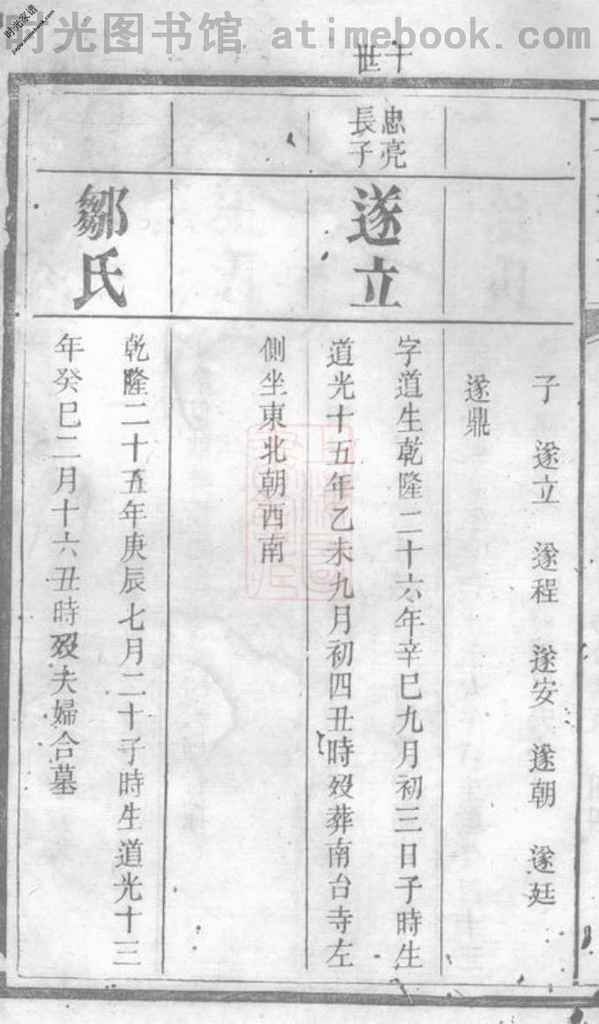 时光图书馆 atimebook.com
时光家谱
十世
子 遂立 遂程 遂安 遂朝 遂廷
遂鼎
忠亮
長子
遂立
字道生乾隆二十六年辛巳九月初三日子時生
道光十五年乙未九月初四丑時歿葬南台寺左
側坐東北朝西南
鄒氏
乾隆二十五年庚辰七月二十子時生道光十三
年癸巳二月十六丑時歿夫婦合墓